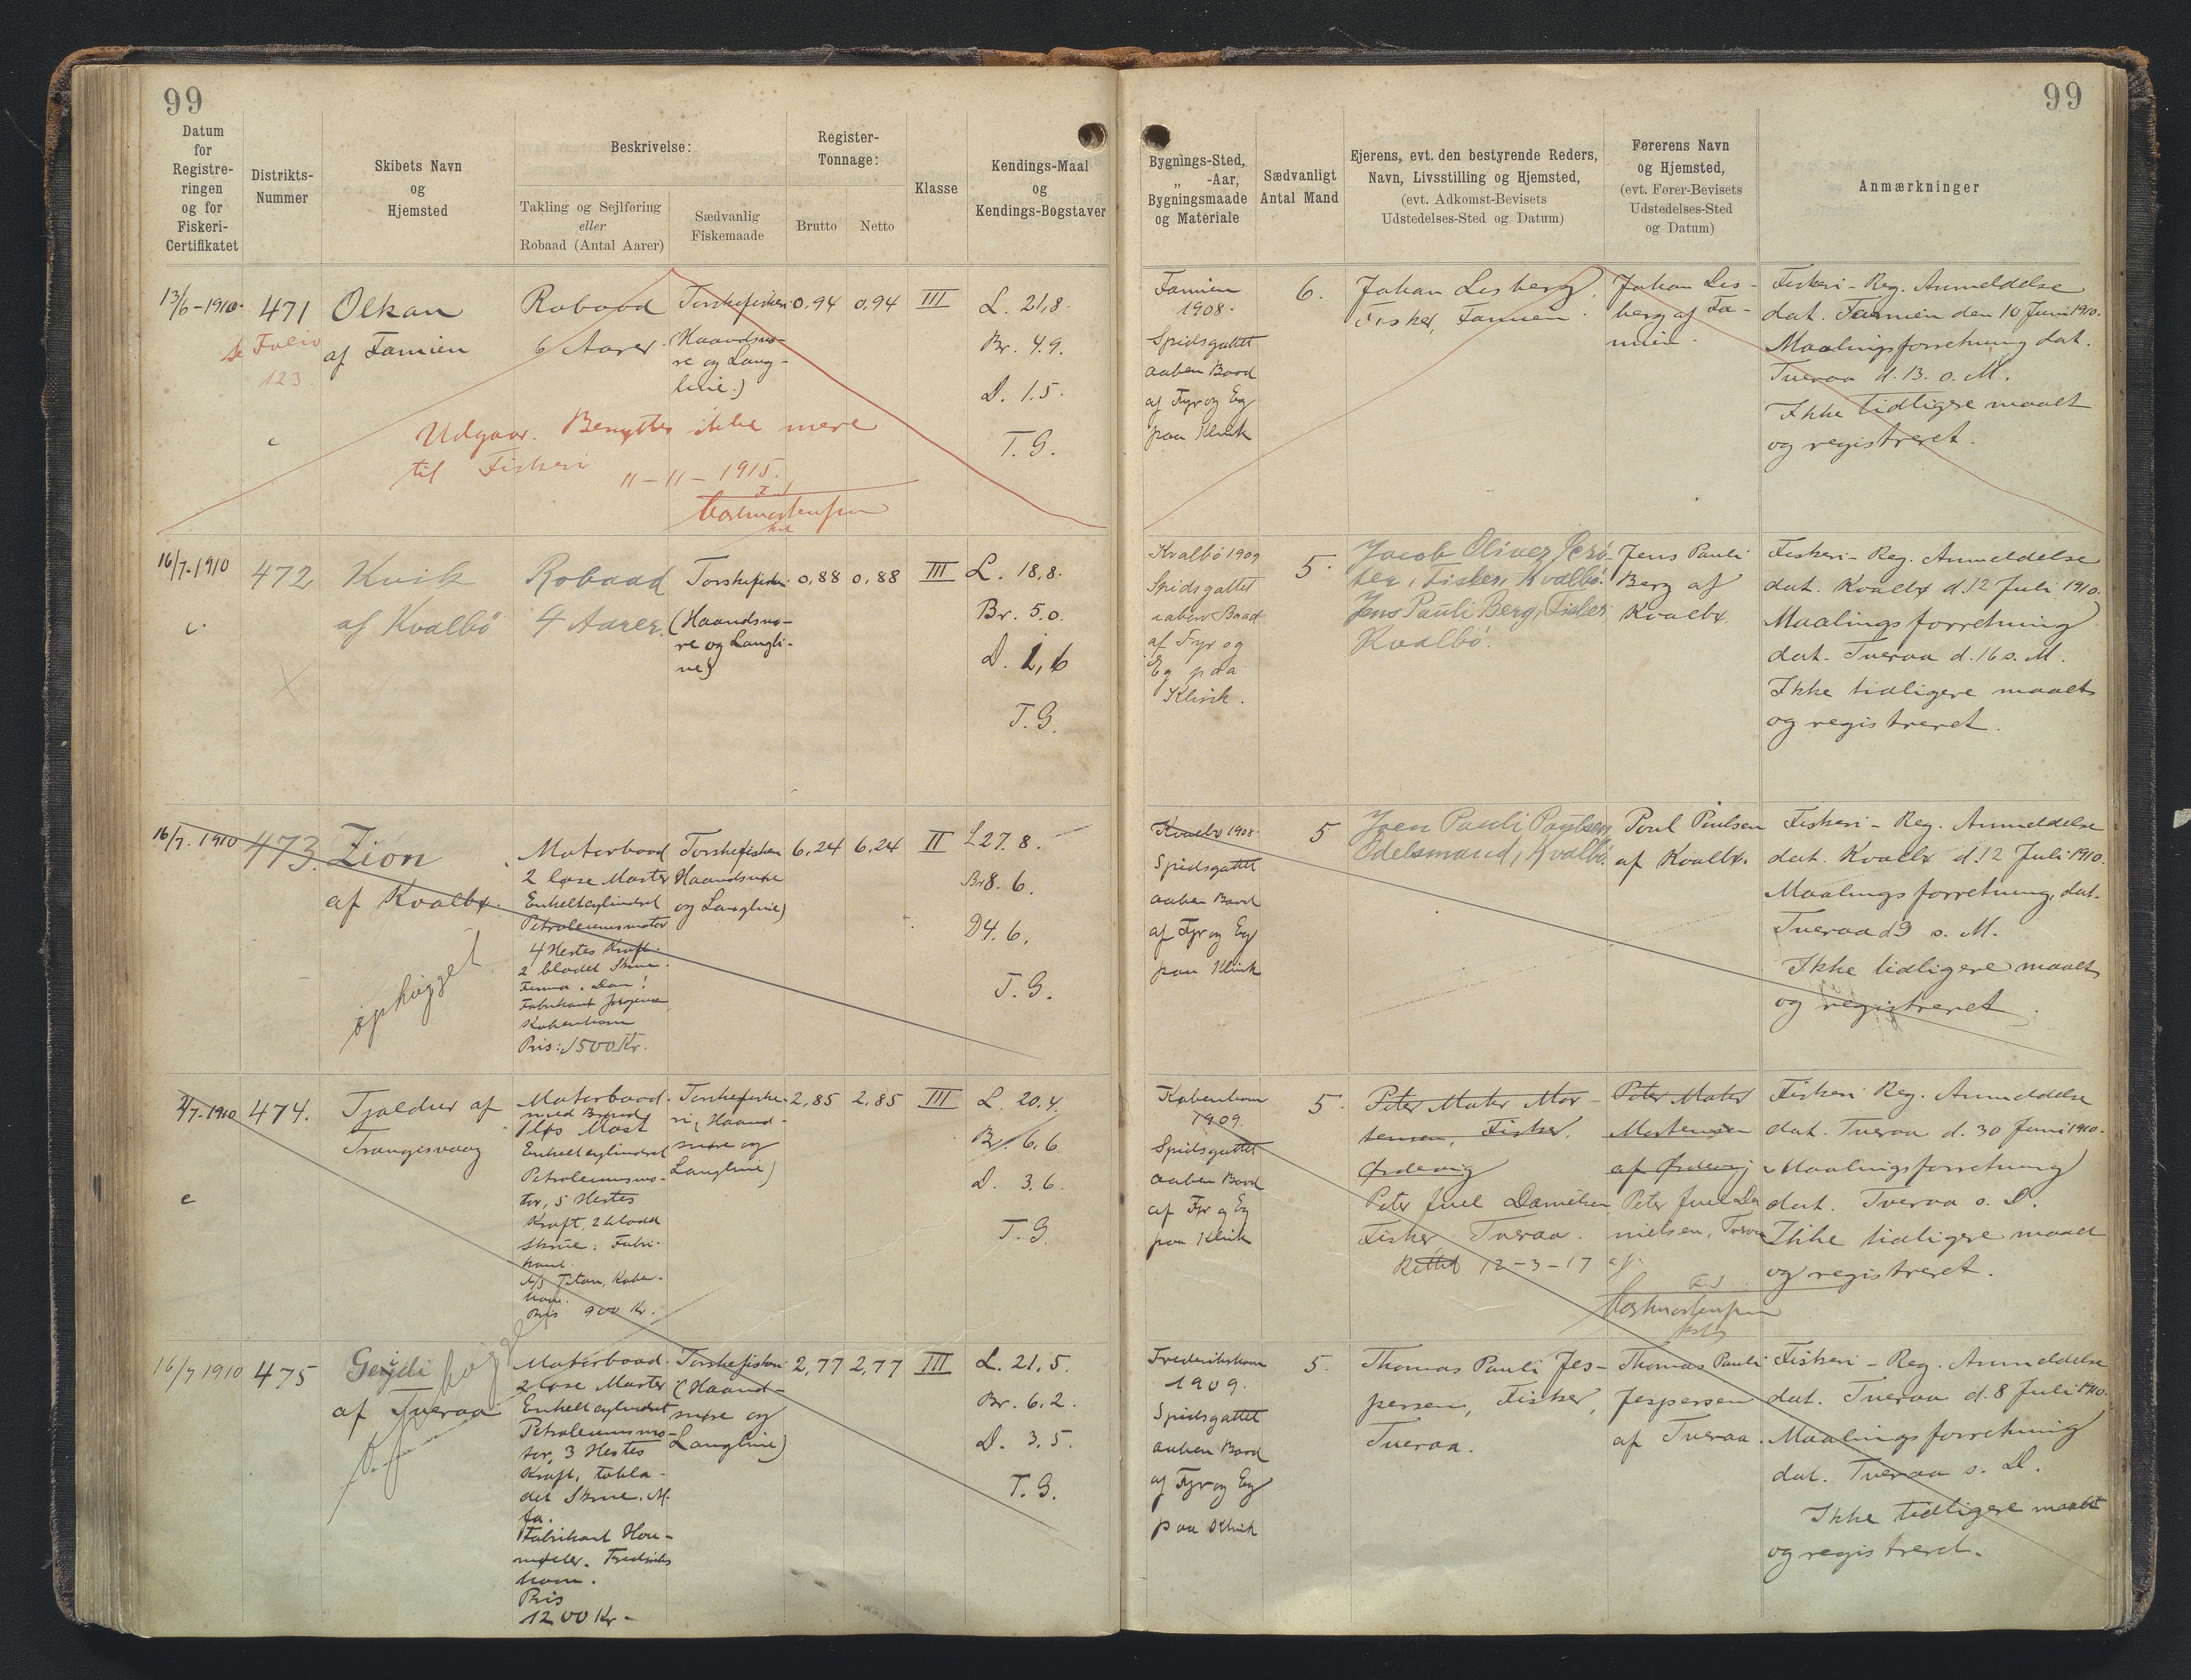 99
99
Datum
for
Registre-
ringen
og for
Fiskeri-
Certifikatet
Distrikts-
Nummer
Skibets Navn
og
Hjemsted
Beskrivelse:
Takling og Sejlføring
eller
Robaad (Antal Aarer)
Sædvanlig
Fiskemaade
Register-
Tonnage:
Brutto
Netto
Klasse
Kendings-Maal
og
Kendings-Bogstaver
Bygnings-Sted,
„ -Aar,
Bygningsmaade
og Materiale
Sædvanligt
Antal Mand
Ejerens, evt. den bestyrende Reders,
Navn, Livsstilling og Hjemsted,
(evt. Adkomst-Bevisets
Udstedelses-Sted og Datum)
Førerens Navn
og Hjemsted,
(evt. Fører-Bevisets
Udstedelses-Sted
og Datum)
Anmærkninger
13/6-1910.
471
se Folio
123.
c
Olkan
af Famien
Robaad
6 Aarer.
Torskefiskeri
(Haandsnø-
re og Lang-
line.)
0,94
0,94
III
L. 21,8.
Br. 4.9.
D. 1.5.
T. G.
Udgaar. Benyttes ikke mere
til Fiskeri
11-11-1915.
Famien
1908.
Spidsgattet
aaben Baad
af Fyr og Eg
paa Klink
6.
Johan Lisberg,
Fisker, Famien.
Johan Lis-
berg af Fa-
mien.
Fiskeri-Reg. Anmeldelse
dat. Famien den 10 Juni 1910.
Maalingsforretning dat.
Tveraa d. 13. s. M.
Ikke tidligere maalt
og registreret.
16/7-1910
472
c.
Kvik
af Kvalbö
Robaad
4 Aarer.
Torskefiskeri
(Haandsnø-
re og Langli-
ne)
0,88
0,88
III
L. 18,8.
Br. 5.0.
D. 1,6
T. G.
Kvalbö 1909
Spidsgattet
aaben Baad
af Fyr og
Eg paa
Klink.
5.
Jens Pauli Berg, Fisker
Kvalbö.
Jens Pauli
Berg af
Kvalbø.
Fiskeri-Reg. Anmeldelse
dat. Kvalbø d. 12 Juli 1910.
Maalingsforretning
dat. Tveraa d. 16 s. M.
Ikke tidligere maalt
og registreret.
16/7. 1910
473.
Zion
af Kvalbø.
ophugget
Motorbaad
2 løse Master
Enkeltcylindret
Petroleumsmotor
4 Hestes Kraft.
2 bladet Skrue.
Firma "Dan"
Fabrikant Jørgensen
København
Pris: 1500 Kr.
Torskefiskeri
Haandsnøre
og Langline)
6,24
6,24
II
L 27. 8.
Br 8. 6.
D 4. 6.
T. G.
Kvalbø 1908.
Spidsgattet
aaben Baad
af Fyr og Eg
paa Klink
5
Odelsmand, Kvalbö.
Poul Poulsen
af Kvalbø.
Fiskeri-Reg. Anmeldelse
dat. Kvalbø d. 12 Juli 1910.
Maalingsforretning, dat.
Tveraa d 9 s. M.
Ikke tidligere maalt
og registreret.
474.
c
Tjaldur af
Trangisvaag
Motorbaad.
med Brønd
1 løs Mast
Enkeltcylindret
Petroleumsmo-
tor, 5 Hestes
Kraft, 2 bladet
Skrue. Fabri-
kant.
A/S Titan, Køben-
havn.
Pris 900 Kr.
Torskefiske-
ri, Haand-
snøre og
Langline)
2,85
2,85
III
L. 20,4.
Br. 6.6.
D. 3.6.
T. G.
København
1909.
Spidsgattet
aaben Baad
af Fyr og Eg
paa Klink
5.
Peter Mater Mor-
tensen, Fisker.
Ørdevig
Peter Juel Danielsen
Fisker Tveraa.
Rettet 12-3-17
Peter Mater
Mortensen
af Ørdevig
Peter Juel Da
nielsen, Tveraa
Fiskeri Reg. Anmeldelse
dat. Tveraa d. 30 Juni 1910.
Maalingsforretning
dat. Tveraa s. D.
Ikke tidligere maalt
og registreret.
16/7 1910
475
Gerdi
af Tveraa
Motorbaad.
2 løse Master
Enkeltcylindret
Petroleumsmo-
tor, 3 Hestes
Kraft, tobla-
det Skrue.
Fabrikant Hou-
møller. Frederiks
havn.
Pris
1200 Kr.
Torskefiskeri
(Haand-
snøre og
Langline)
2,77
2,77
III
L. 21,5.
Br. 6.2.
D. 3.5.
T. G.
Frederikshavn
1909.
Spidsgattet
aaben Baad
af Fyr og Eg
paa Klink
5.
Thomas Pauli Jes-
persen, Fisker,
Tveraa.
Thomas Pauli
Jespersen
af Tveraa.
Fiskeri-Reg. Anmeldelse
dat. Tveraa d. 8 Juli 1910.
Maalingsforretning
dat. Tveraa s. D.
Ikke tidligere maalt
og registreret.